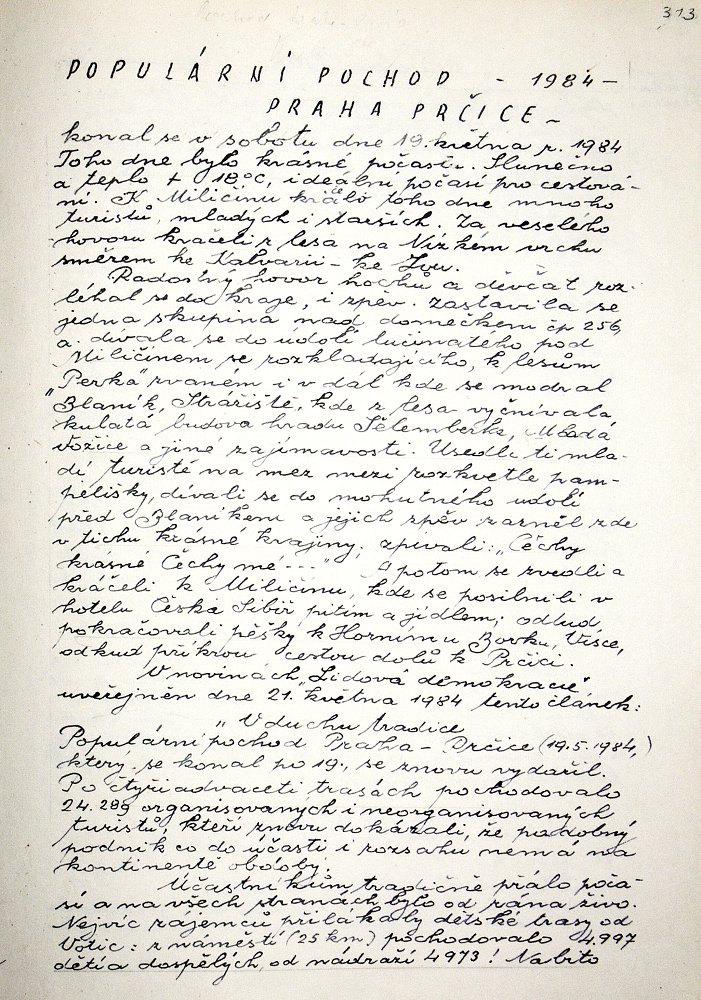 313
POPULÁRNÍ POCHOD - 1984 -
PRAHA PRČICE -
konal se v sobotu dne 19. května r. 1984
Toho dne bylo krásné počasí. Slunečno
a teplo + 18°C, ideální počasí pro cestová-
ní. K Miličínu kráčelo toho dne mnoho
turistů, mladých i starších. Za veselého
hovoru kráčeli z lesa na Nízkém vrchu
směrem ke Kalvarii - ke Lvu.
Radostný hovor hochů a děvčat roz-
léhal se do kraje, i zpěv. Zastavila se
jedna skupina nad domečkem čp 256,
a dívala se do údolí lučinatého pod
Miličínem se rozkládajícího, k lesům
"Perka" zvaném i v dál kde se modral
Blaník, Strážiště, kde z lesa vyčnívala
kulatá budova hradu Šelemberka, Mladá
Vožice a jiné zajímavosti. Usedli ti mla-
dí turisté na mez mezi rozkvetlé pam-
pelišky, dívali se do mohutného udolí
před Blaníkem a jejich zpěv zazněl zde
v tichu krásné krajiny; zpívali: "Čechy
krásné Čechy mé ---" A potom se zvedli a
kráčeli k Miličínu, kde se posilnili v
hotelu Česká Sibiř pitím a jídlem; odtud
pokračovali pěšky k Hornímu Borku, Vísce,
odkud příkrou cestou dolů k Prčici.
V novinách "Lidová demokracie"
uveřejněn dne 21. května 1984 tento článek:
"V duchu tradice
Populární pochod Praha - Prčice (19.5.1984,)
ktery se konal po 19., se znovu vydařil.
Po čtyřiadvaceti trasách pochodovalo
24.289 organisovaných i neorganisovaných
turistů, kteří znovu dokázali, že podobný
podnik co do účasti i rozsahu nemá na
kontinentě obdoby.
Účastníkům tradičně přálo poča-
sí a na všech stranách bylo od rána živo.
Nejvíc zájemců přilákaly dětské trasy od
Votic: z náměstí (25 km) pochodovalo 4.997
dětí a dospělých, od nádraží 4973! Na bito